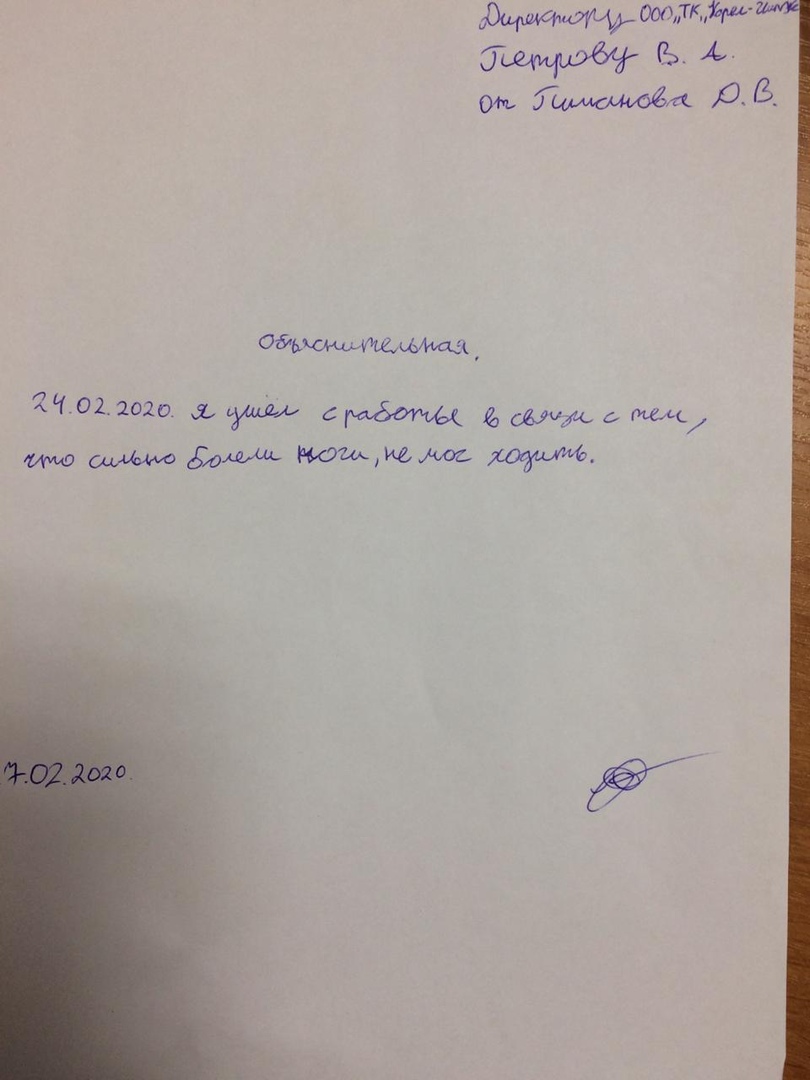 Директору ООО „ТК „Карел-
Петрову В. А.
от Пиманова Д. В.
Объяснительная.
24.02.2020. я ушел с работье в связи с тем,
что сильно болели ноги, не мог ходить.
7.02.2020.